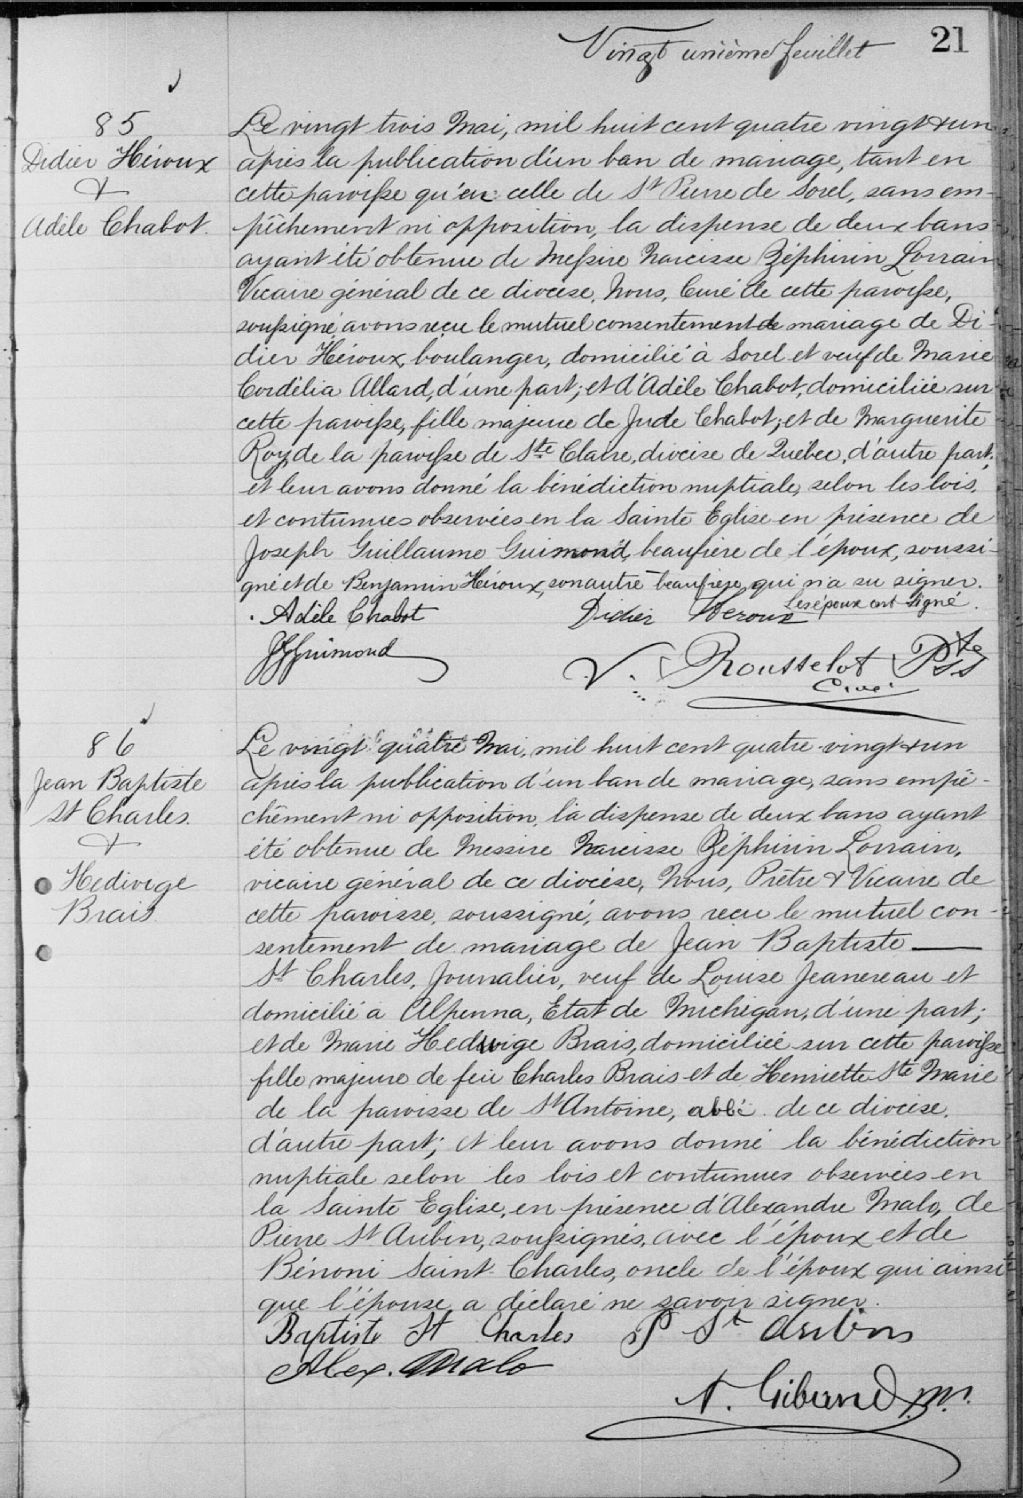 Vingt unième feuillet 21
85
Didier Héroux
&
Adèle Chabot.
Le vingt trois Mai, mil huit cent quatre vingt & un
après la publication d'un ban de mariage, tant en
cette paroisse qu'en celle de St Pierre de Sorel, sans em-
pêchement ni opposition, la dispense de deux bans
ayant été obtenue de Messire Narcisse Zéphirin Lorrain
Vicaire général de ce diocèse, Nous, Curé de cette paroisse,
soussigné avons reçu le mutuel consentement de mariage de Di-
dier Héroux, boulanger, domicilié à Sorel et veuf de Marie
Cordélia Allard, d'une part; et d'Adèle Chabot, domiciliée sur
cette paroisse, fille majeure de Jude Chabot, et de Marguerite
Roy, de la paroisse de Ste Claire, diocèse de Québec, d'autre part,
et leur avons donné la bénédiction nuptiale, selon les lois,
et coutumes observées en la Sainte Eglise en présence de
Joseph Guillaume Guimond, beaufrère de l'époux, soussi-
gné et de Benjamin Héroux, son autre beaufrère, qui n'a su signer.
Les époux ont signé.
Adèle Chabot Didier Heroux
JGGuimond
V. Rousselot Ptre
Curé SS
86
Jean Baptiste
St Charles.
&
Hedwige
Brais
Le vingt quatre Mai, mil huit cent quatre-vingt & un
après la publication d'un ban de mariage, sans empê-
chement ni opposition, la dispense de deux bans ayant
été obtenue de Messire Narcisse Zéphirin Lorrain,
vicaire général de ce diocèse, Nous, Prêtre & Vicaire de
cette paroisse, soussigné, avons reçu le mutuel con-
sentement de mariage de Jean Baptiste
St Charles, Journalier, veuf de Louise Jeanereau et
domicilié à Alpenna, Etat de Michigan, d'une part;
et de Marie Hedwige Brais, domiciliée sur cette paroisse
fille majeure de feu Charles Brais et de Henriette Ste Marie
de la paroisse de St Antoine, abbé de ce diocèse,
d'autre part; et leur avons donné la bénédiction
nuptiale selon les lois et coutumes observées en
la Sainte Eglise, en présence d'Alexandre Malo, de
Pierre St Aubin, soussignés, avec l'époux et de
Bénoni Saint-Charles, oncle de l'époux qui ainsi
que l'épouse a déclaré ne savoir signer.
Baptiste St Charles P St Aubin
Alex. Malo